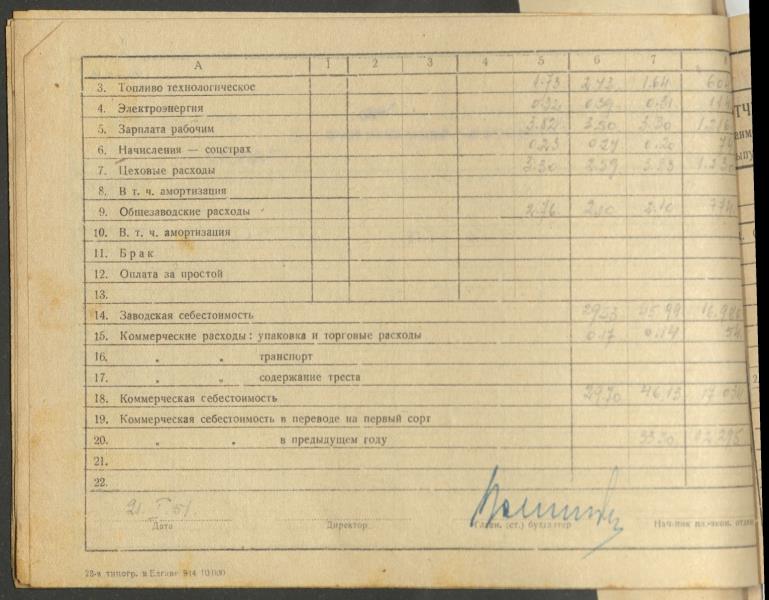 А 1 2 3 4 5 6 7 8
3. Топливо технологическое 1.73 2.43 1.64
4. Электроэнергия 0.32 0.39 0.31
5. Зарплата рабочим 3.82 3.50 3.30
6. Начисления — соцстрах 0.23 0.27 0.20
7. Цеховые расходы 3.30 2.39 3.33
8. В т. ч. амортизация
9. Общезаводские расходы 2.76 2.10 2.10
10. В т. ч. амортизация
11. Брак
12. Оплата за простой
13.
14. Заводская себестоимость 29.53 45.99
15. Коммерческие расходы: упаковка и торговые расходы 0.17 0.14 54
16. „ „ транспорт
17. „ „ содержание треста
18. Коммерческая себестоимость 29.70 46.13
19. Коммерческая себестоимость в переводе на первый сорт
20. „ „ в предыдущем году 33.30
21.
22.
21. I. 51.
Дата Директор Главн. (ст.) бухгалтер
28-я типогр. в Елгаве